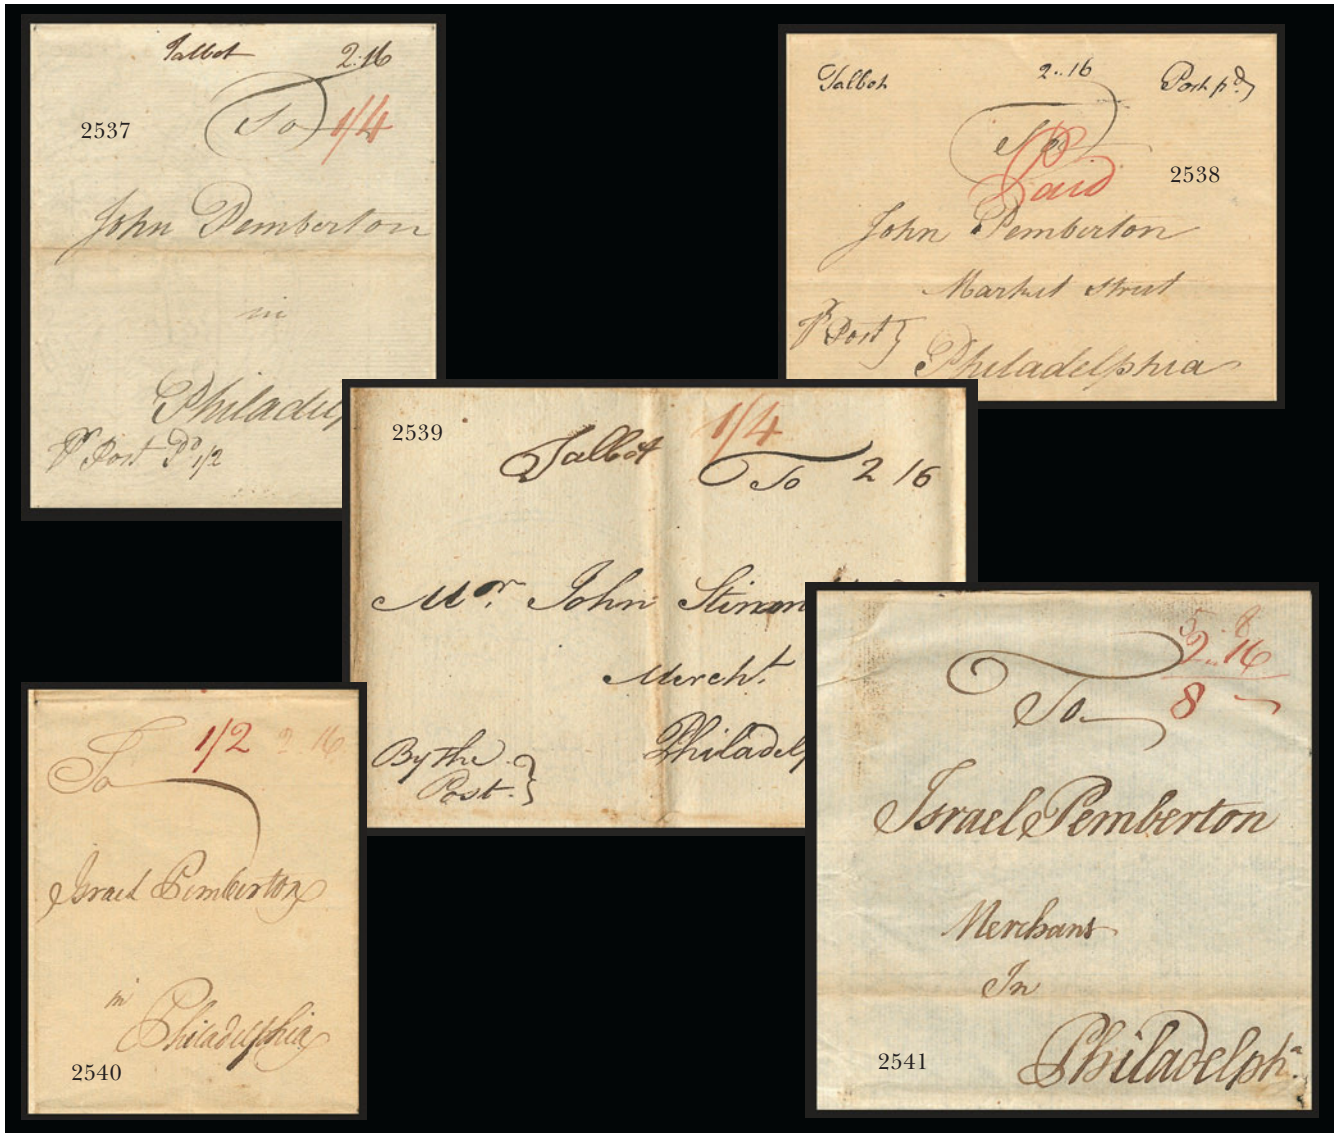 Talbot 2:16
To 1/4
2537
John Pemberton
in
Philadelp
Pr Post Pd 1/2
Talbot 2..16 Post pd.
To
Paid
2538
John Pemberton
Market Street
Pr Post
Philadelphia
2539
1/4
Talbot To 2 16
Mr. John Stinson
Mercht.
By the
Post.
Philadelp
To 1/2 2 16
Israel Pemberton
in
Philadelphia
2540
5 . 8
2..16
To 8
Israel Pemberton
Merchant
In
2541
Philadelpha.